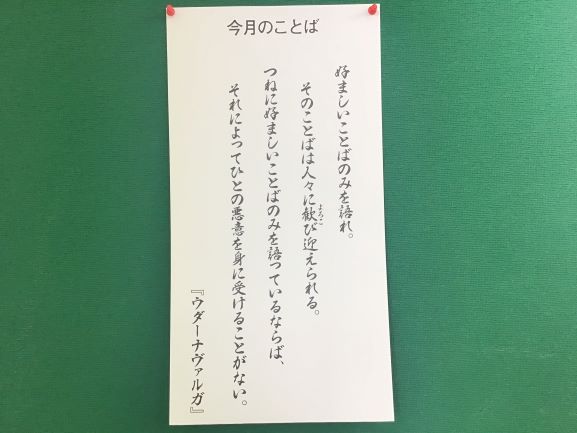 今月のことば
好ましいことばのみを語れ。
そのことばは人々に歓び迎えられる。
よろこ
つねに好ましいことばのみを語っているならば、
それによってひとの悪意を身に受けることがない。
『ウダーナヴァルガ』